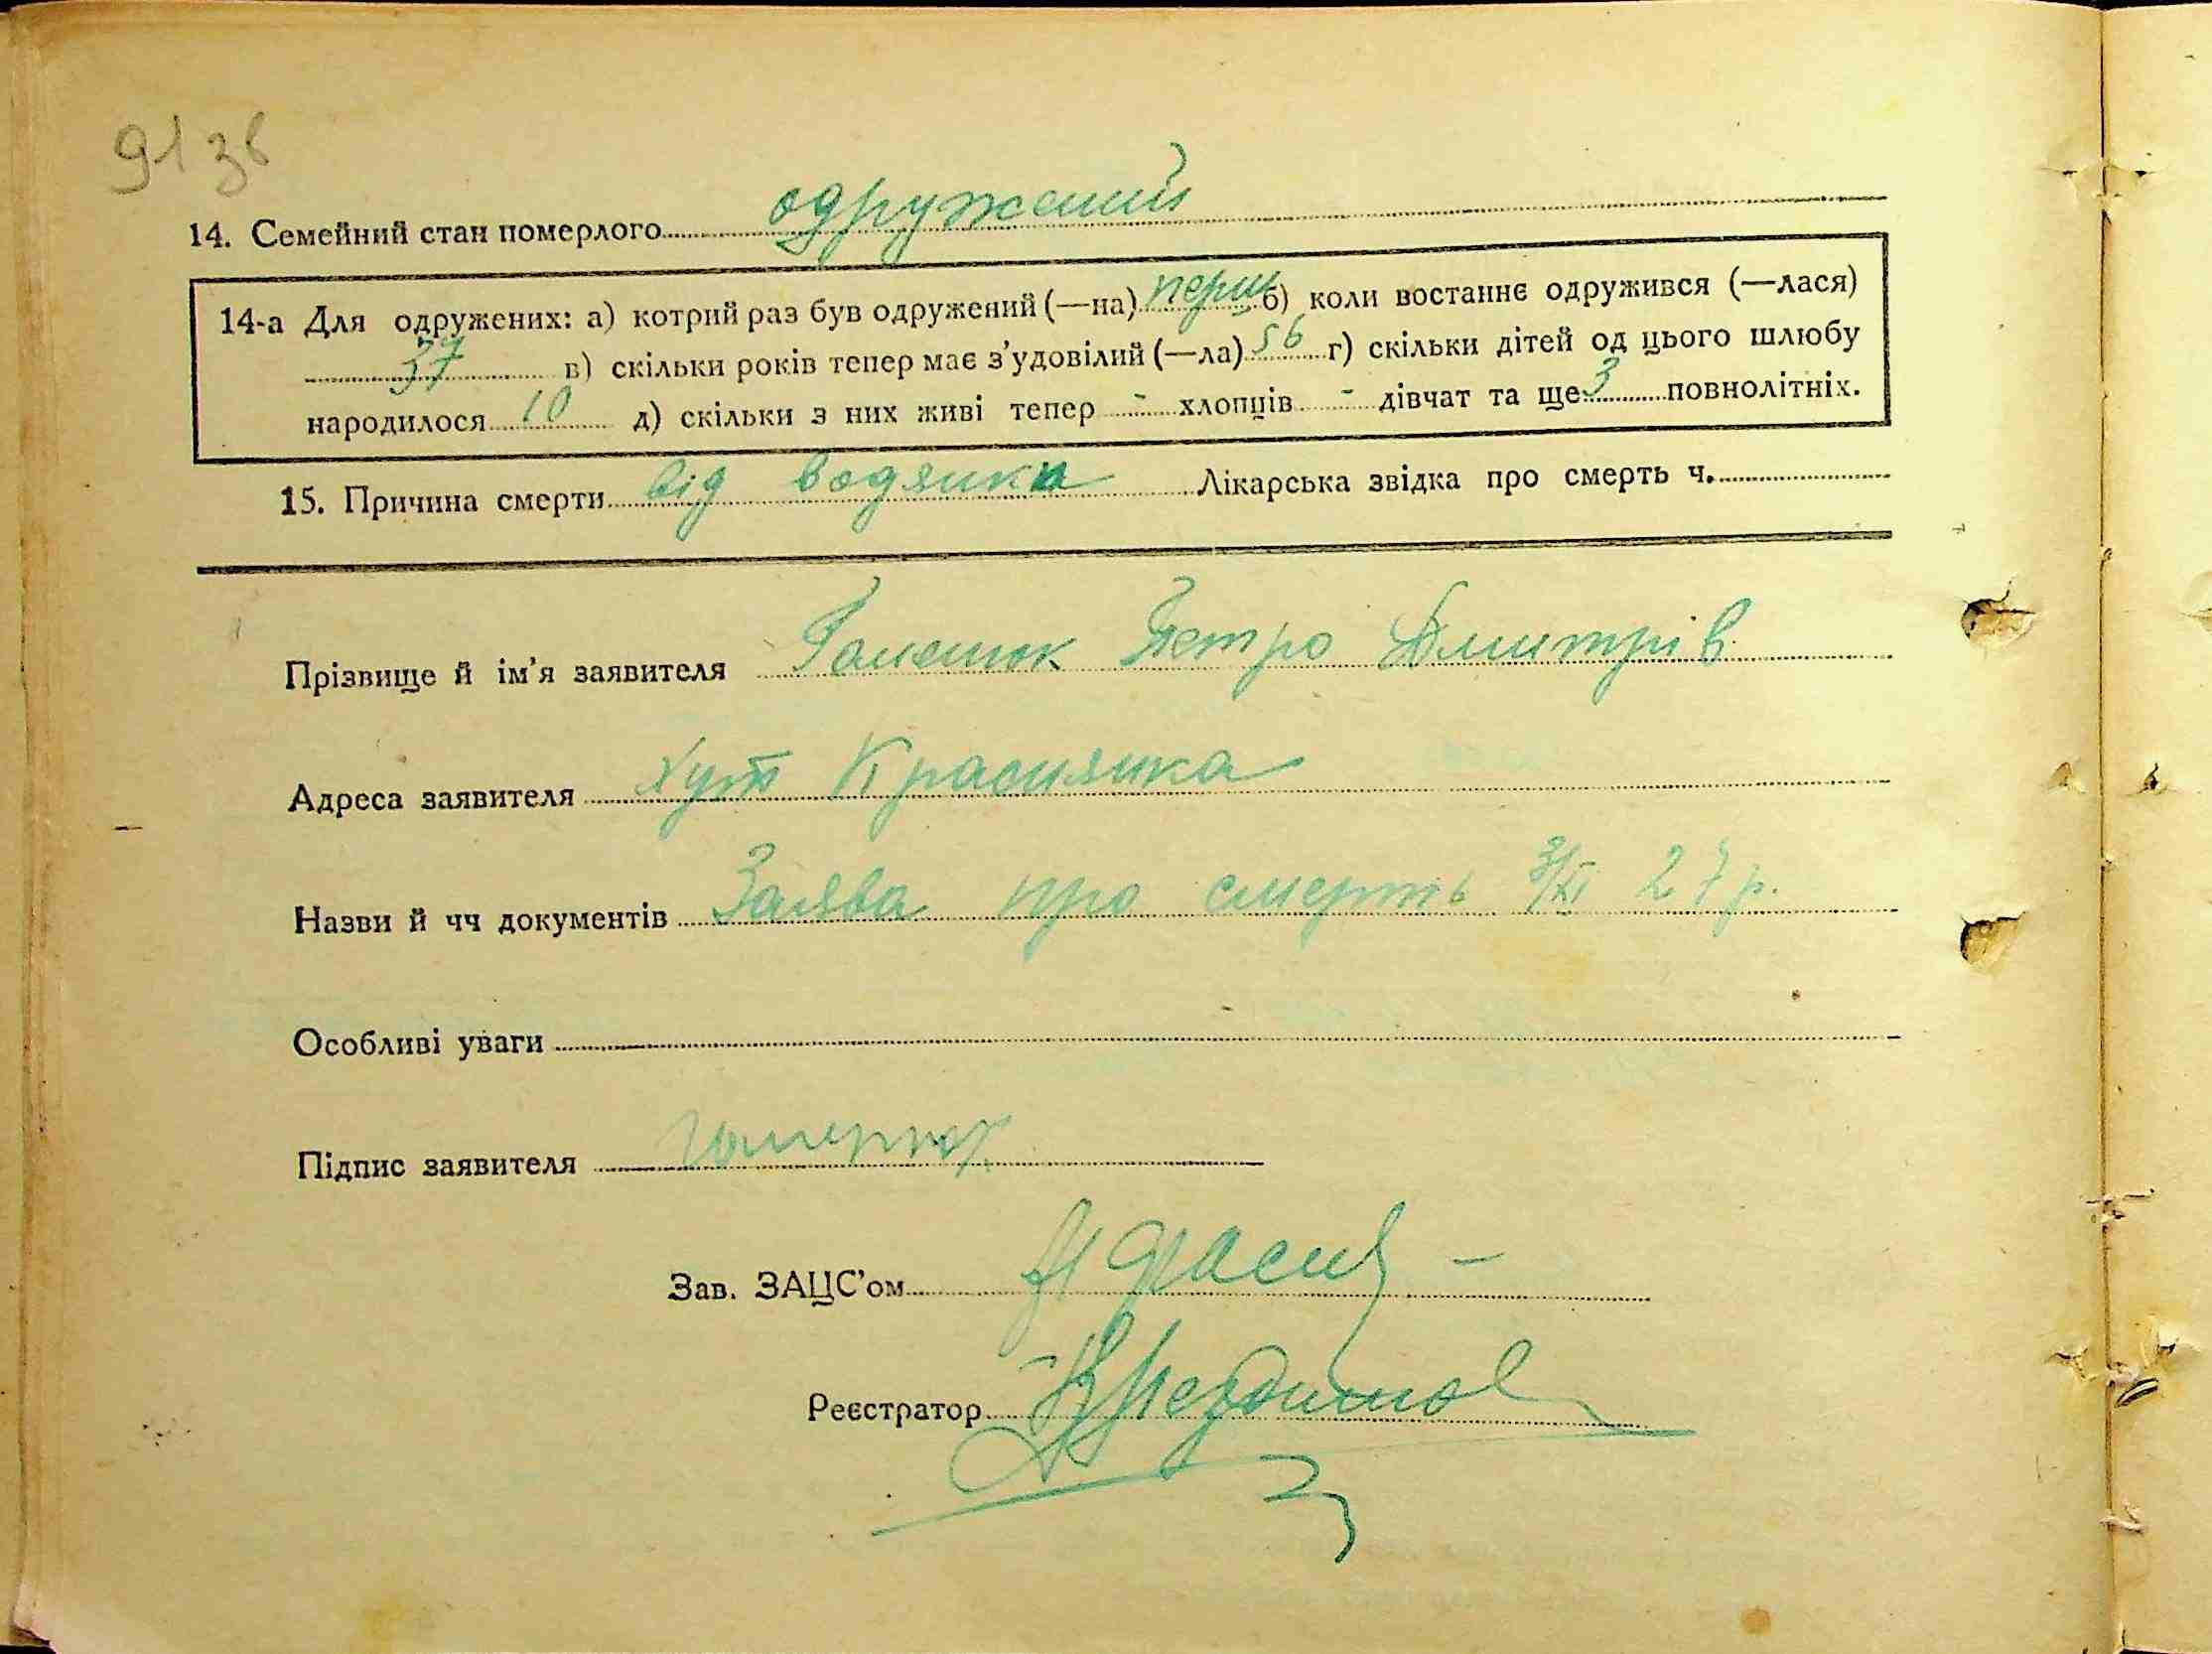 91 зв
14. Семейний стан померлого одружений
14-а Для одружених: а) котрий раз був одружений (—на) перш б) коли востаннє одружився (—лася)
37 в) скільки років тепер має з'удовілий (—ла) 56 г) скільки дітей од цього шлюбу
народилося 10 д) скільки з них живі тепер - хлопців - дівчат та ще 3 повнолітніх.
15. Причина смерти від водянки Лікарська звідка про смерть ч.
Прізвище й ім'я заявителя Петро Дмитрів
Адреса заявителя хут Краснянка
Назви й чч документів Заява про смерть 3/XI 27 р.
Особливі уваги
Підпис заявителя
Зав. ЗАЦС'ом
Реєстратор